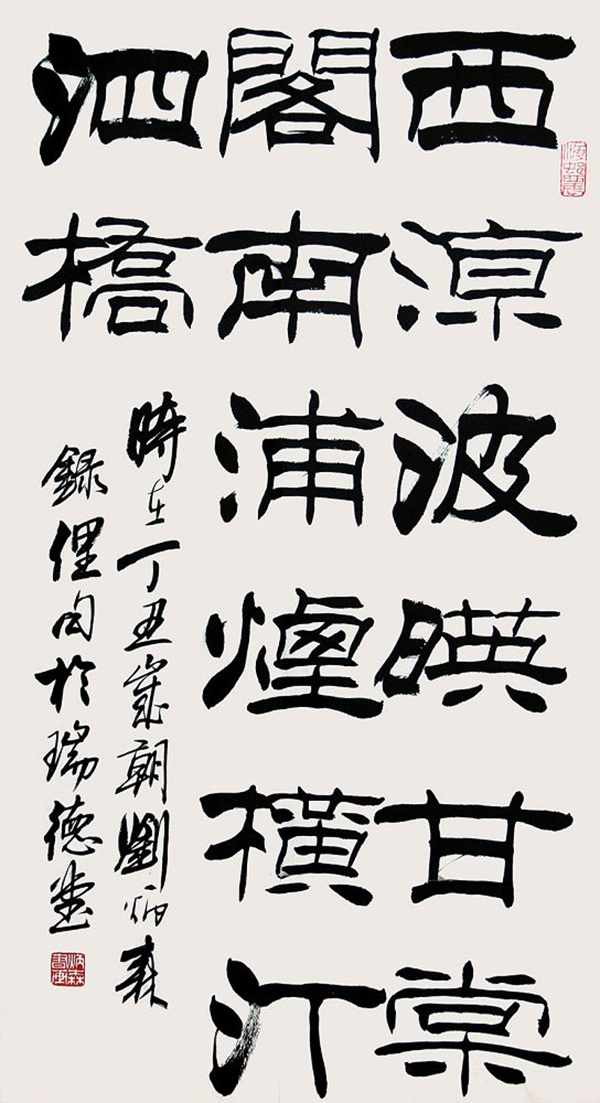 西涼波暎甘棠
閣南浦煙橫汀
泗橋
時在丁丑歲朝劉炳森
錄俚句於瑞德堂